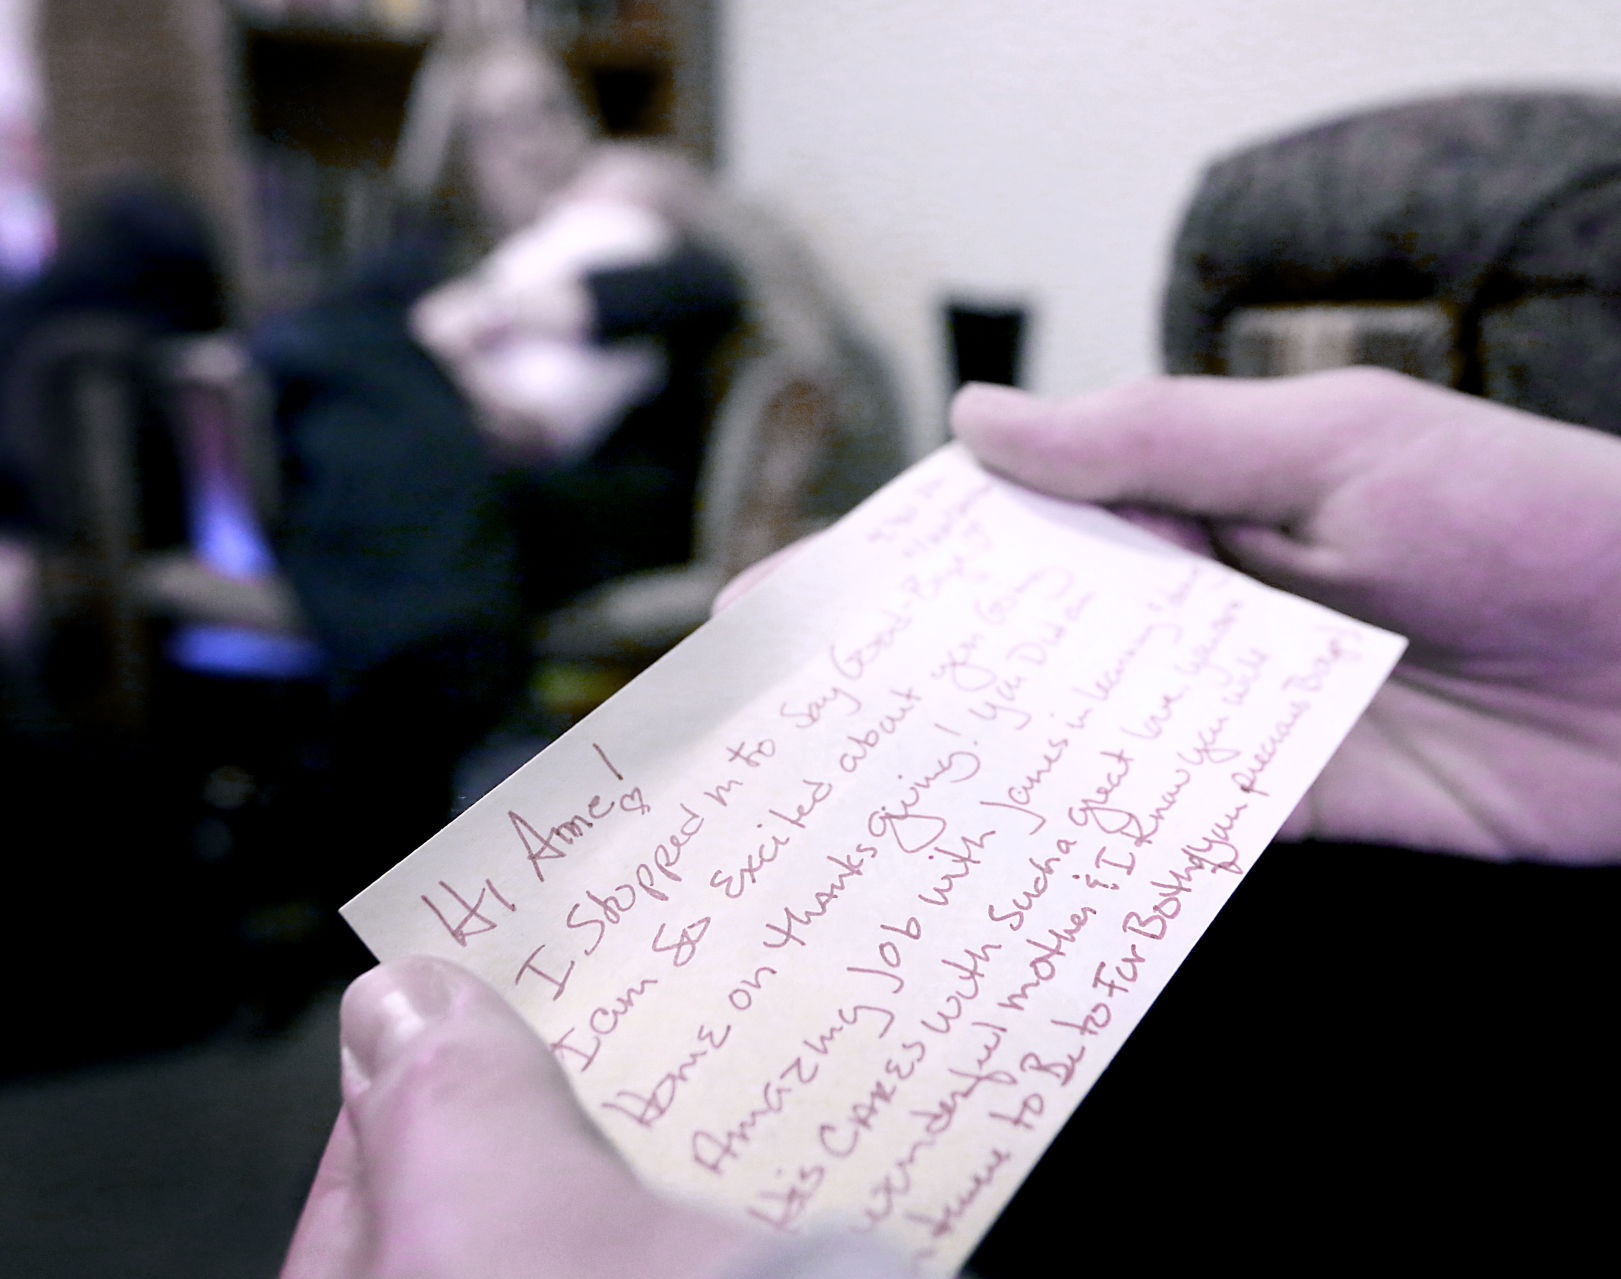 Hi Amie!
I stopped in to say Good-Bye
I am so excited about you Going
Home on thanksgiving! You Did an
Amazing Job with James in learning
His CARES with such a great love. you are
wonderful mother & I know you will
to Be to For Both of your precious Boys!